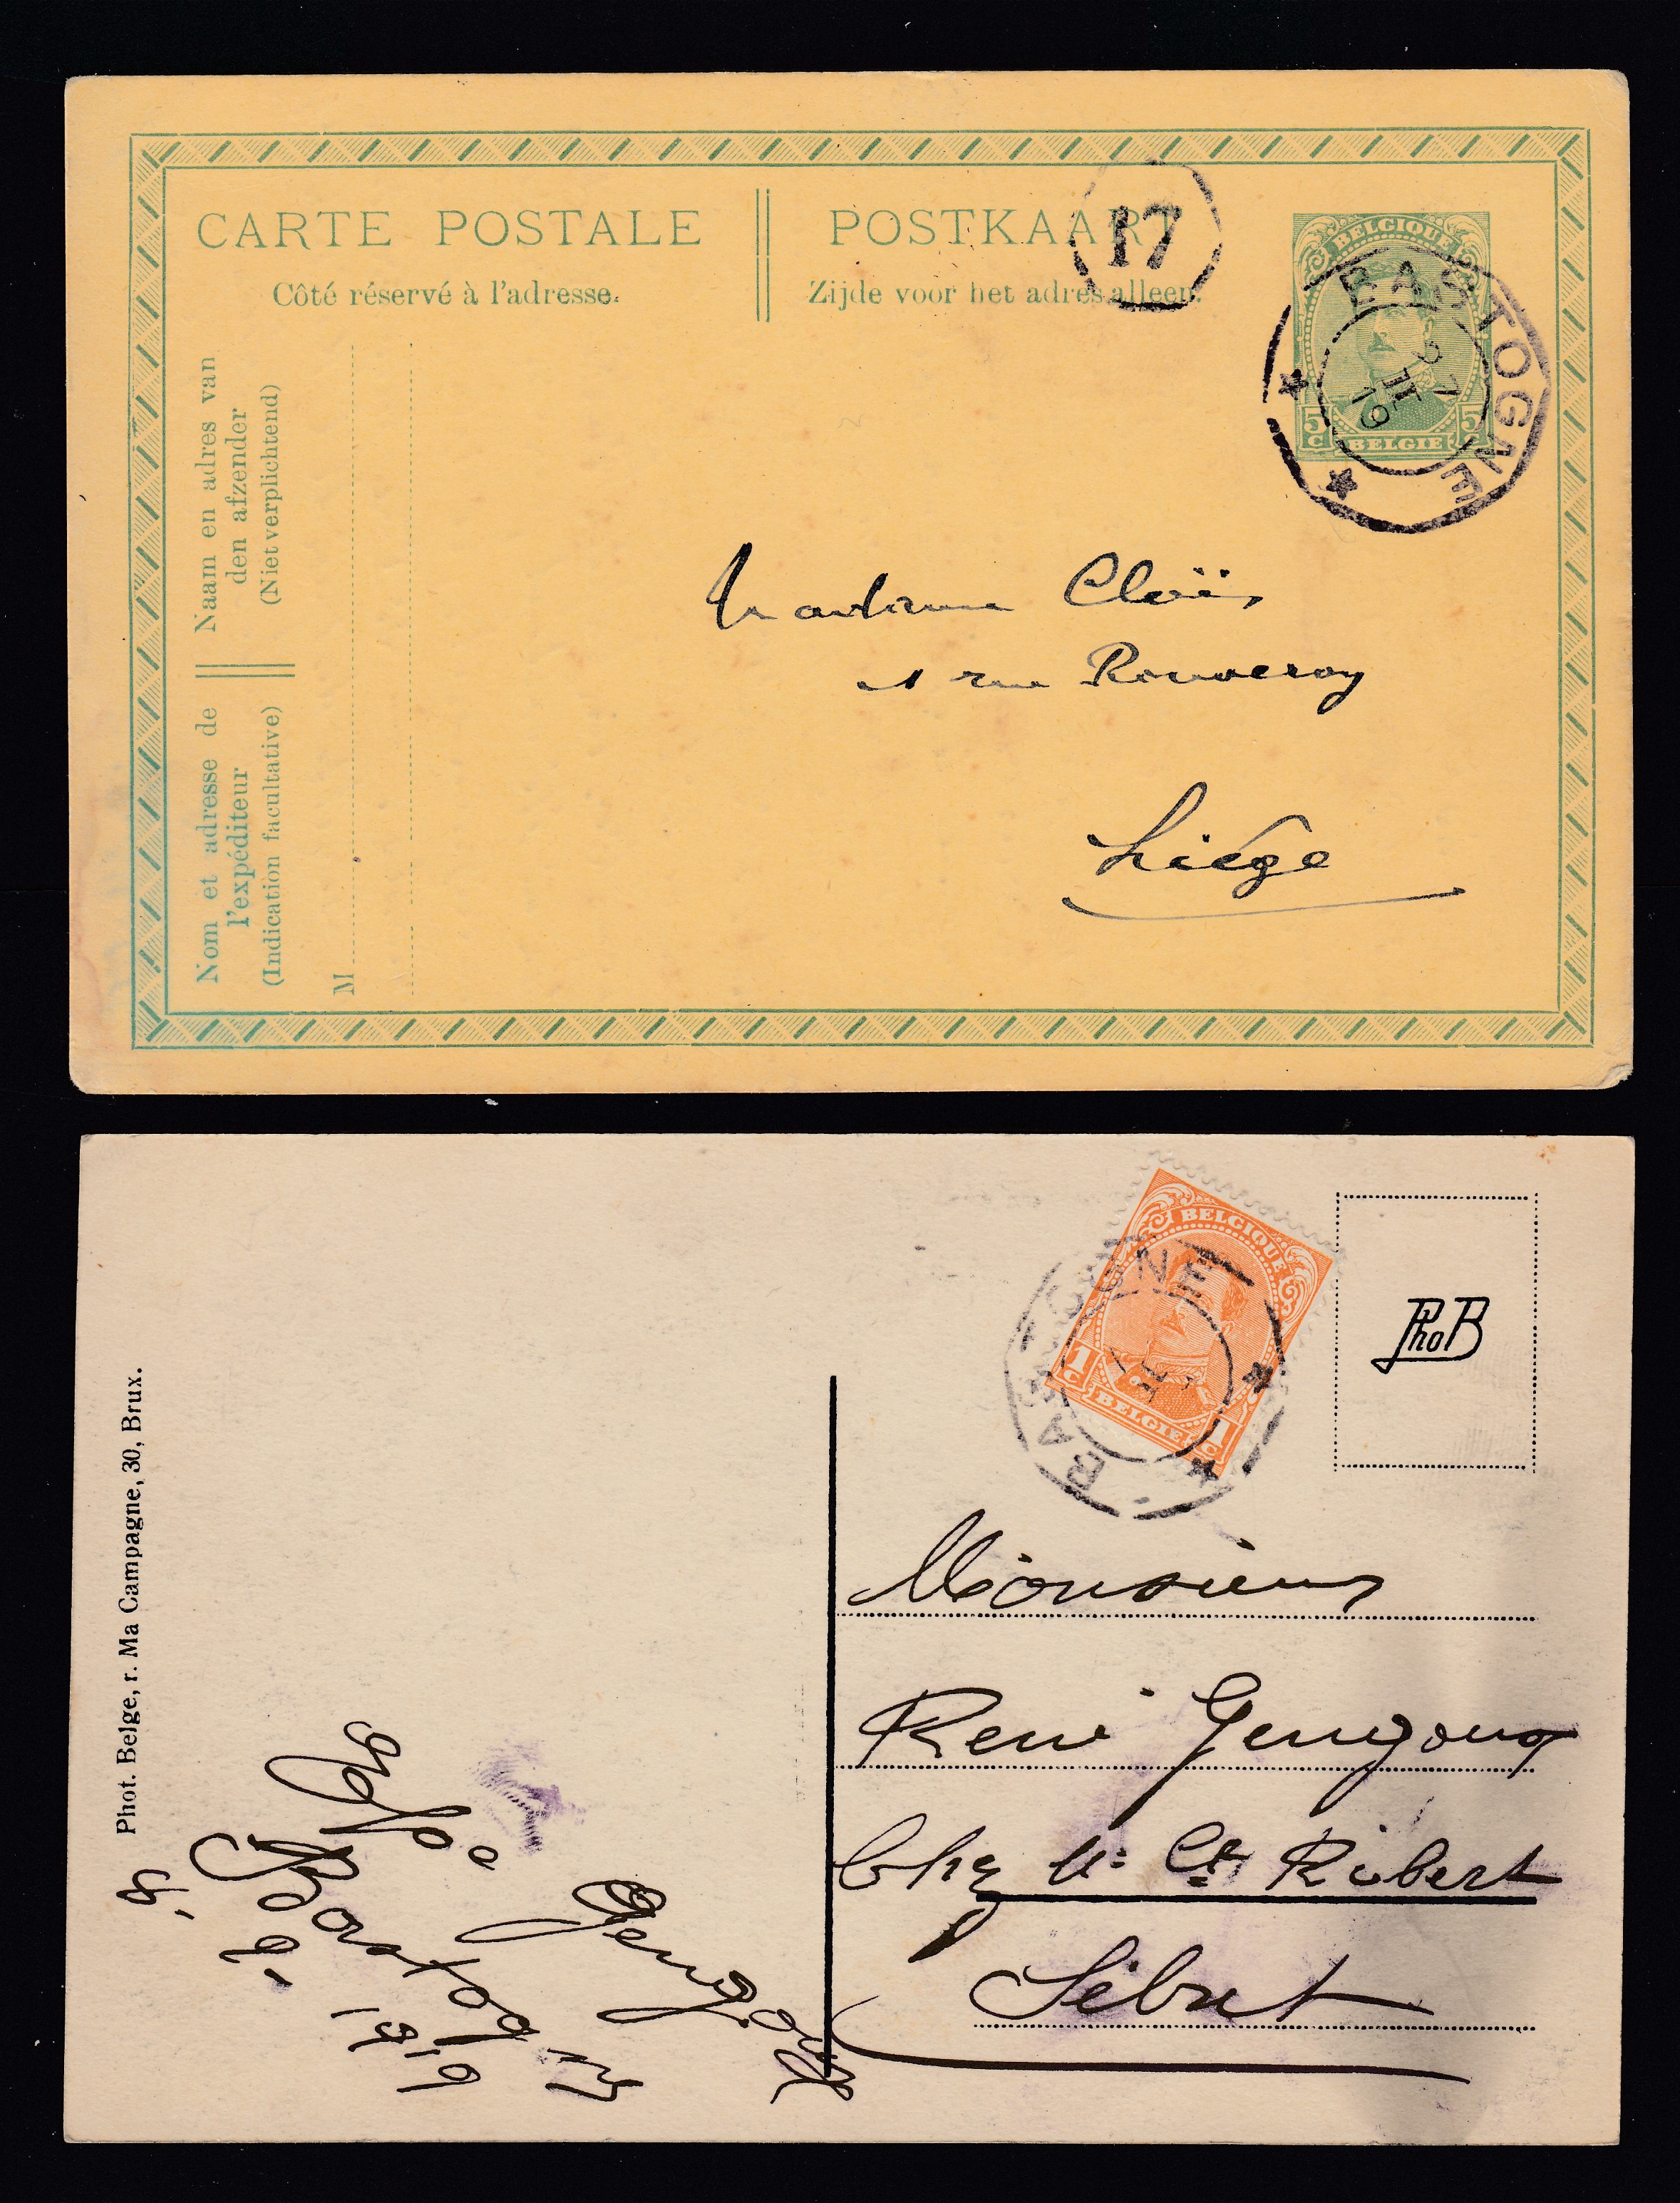 CARTE POSTALE
Côté réservé à l'adresse.
POSTKAART
Zijde voor het adres alleen.
17
BELGIQUE
5c 5c
BELGIE
BASTOGNE
27
II
19
Naam en adres van
den afzender
(Niet verplichtend)
Nom et adresse de
l'expéditeur
(Indication facultative)
M
Madame
1 rue Rouveroy
Liége
BELGIQUE
1c 1c
BELGIE
BASTOGNE
II
PhoB
Phot. Belge, r. Ma Campagne, 30, Brux.
Monsieur
René Gengoux
Chez Mr Ct Robert
Sibret
Gengoux
Bastogne
8. 2. 1919